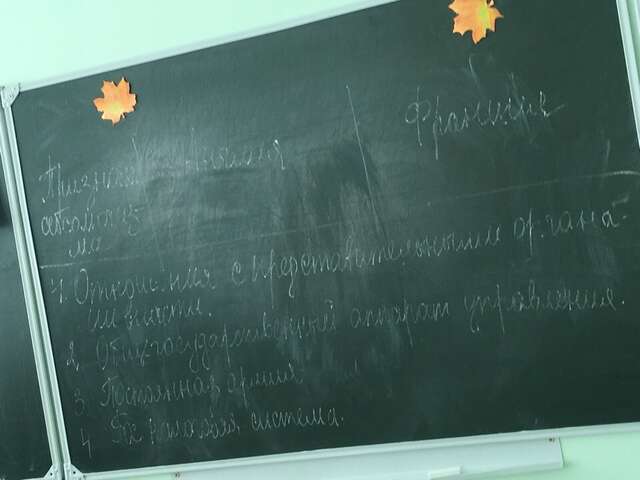 Признаки Англия Франция
абсолютиз
ма
1. Отношения с представительными органа-
ми власти.
2. Общегосударственный аппарат управления.
3. Постоянная армия
4. Налоговая система.